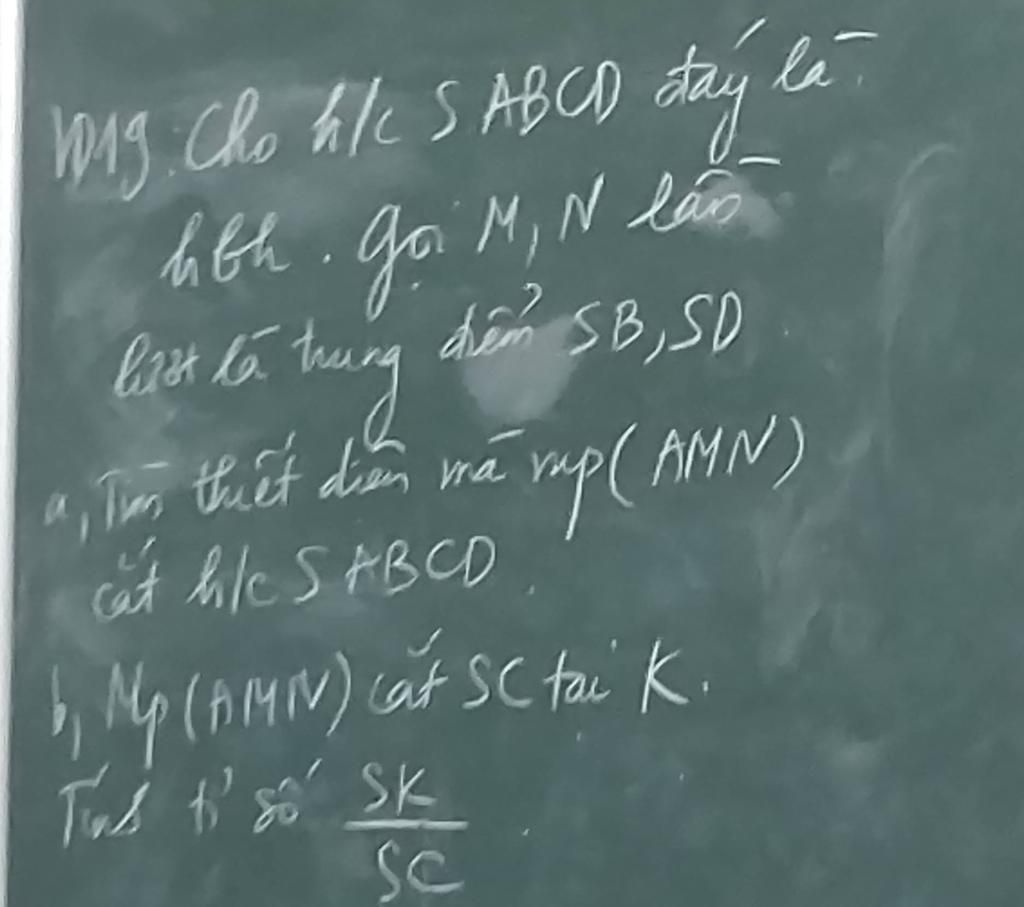 VD19. Cho h/c S ABCD đáy là
hbh. Gọi M, N lần
lượt là trung điểm SB, SD
a, Tìm thiết diện mà mp( AMN)
cắt h/c S ABCD.
b, Mp (AMN) cắt SC tại K.
Tính tỉ số SK
SC